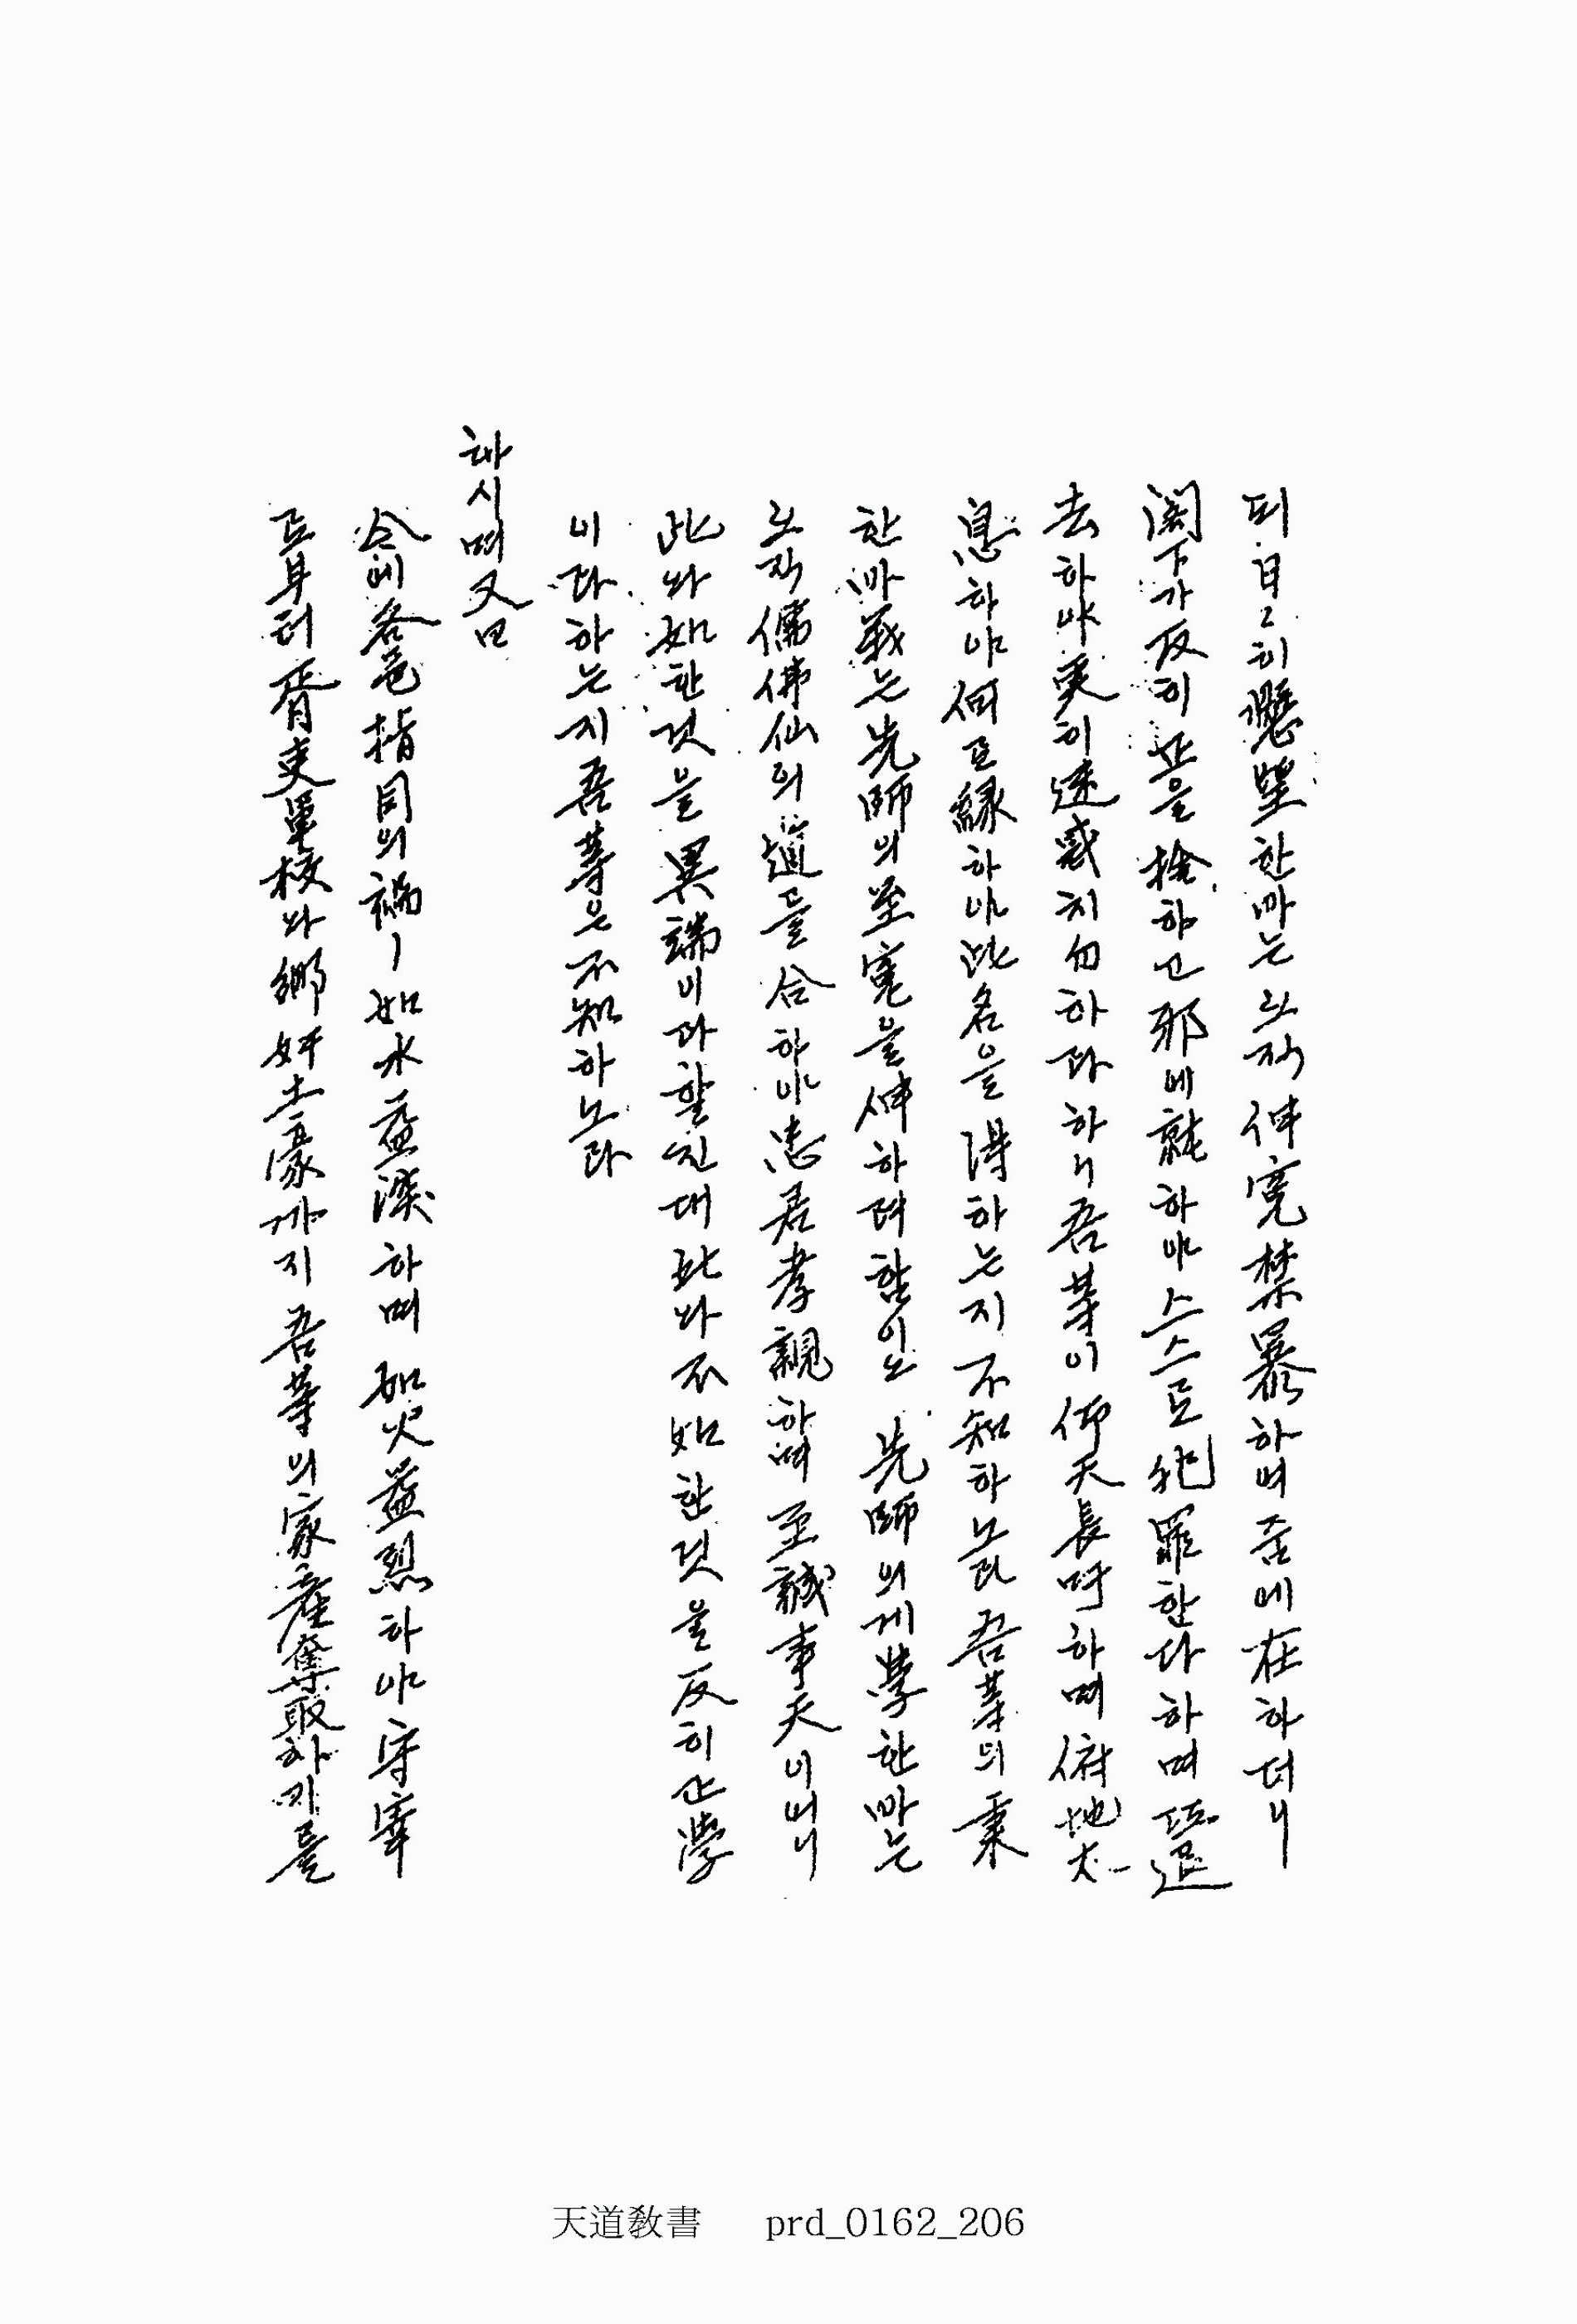 터日日히懸望한마는오작伸寃禁暴하며중에在하더니
閤下가反히正을捨하고邪에就하야스스로犯罪한다하며亟退
去하야更히迷惑치勿하라하니吾輩이仰天長吁하며俯地太
息하야何로緣하야此名을得하는지不知하노라吾輩의稟
한마者는先師의至寃을伸하려함이오先師의게學한마는
오작儒佛仙의道를合하야忠君孝親하며至誠事天이니
此와如한것을異端이라할진대此와不如한것을反히正學
이라하는지吾等은不知하노라
하시며又曰
今에各邑指目의禍ㅣ如水益深하며如火益烈하야守宰
로부터胥吏軍校와鄕奸土豪까지吾等의家産奪取하기를
天道敎書 prd_0162_206